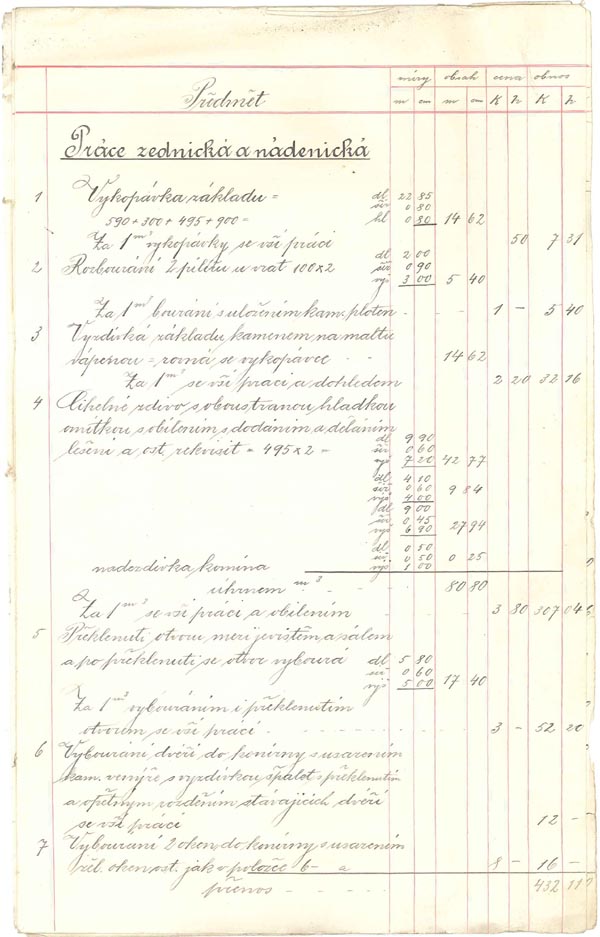 míry obsah cena obnos
Předmět m cm m cm K h K h
Práce zednická a nádenická
1 Vykopávka základu = dl 22 85
šíř 0 80
590 + 300 + 495 + 900 = hl 0 80 14 62
Za 1 m³ vykopávky se vší prácí 50 7 31
dl 2 00
2 Rozbourání 2 pilířů u vrat 100 x 2 šíř 0 90
výš 3 00 5 40
Za 1 m³ bourání s uložením kam. ploten 1 – 5 40
3 Vyzdívka základu kamenem na maltu
vápenou = rovná se vykopávce 14 62
Za 1 m³ se vší prací a dohledem 2 20 32 16
4 Cihelné zdivo s oboustranou hladkou
omítkou s obílením s dodáním a děláním
lešení a ost. rekvisit = 495 x 2 = dl 9 90
šíř 0 60
výš 7 20 42 77
dl 4 10
šíř 0 60 9 84
výš 4 00
dl 9 00
šíř 0 45
výš 6 90 27 94
dl 0 50
šíř 0 50 0 25
nadezdívka komína výš 1 00
úhrnem m³ 80 80
Za 1 m³ se vší prací a obílením 3 80 307 04
5 Překlenutí otvoru mezi jevištěm a sálem
a po překlenutí se otvor vybourá dl 5 80
šíř 0 60
výš 5 00 17 40
Za 1 m³ vybouráním i překlenutím
otvorem se vší prací 3 – 52 20
6 Vybourání dveří do konírny s usazením
kam. s vyzdívkou špalet s překlenutím
a opětným stávajících dveří
se vší prácí 12 –
7 Vybourání 2 oken do konírny s usazením
oken ost. jak v položce 6– a 8 – 16 –
přenos 432 11